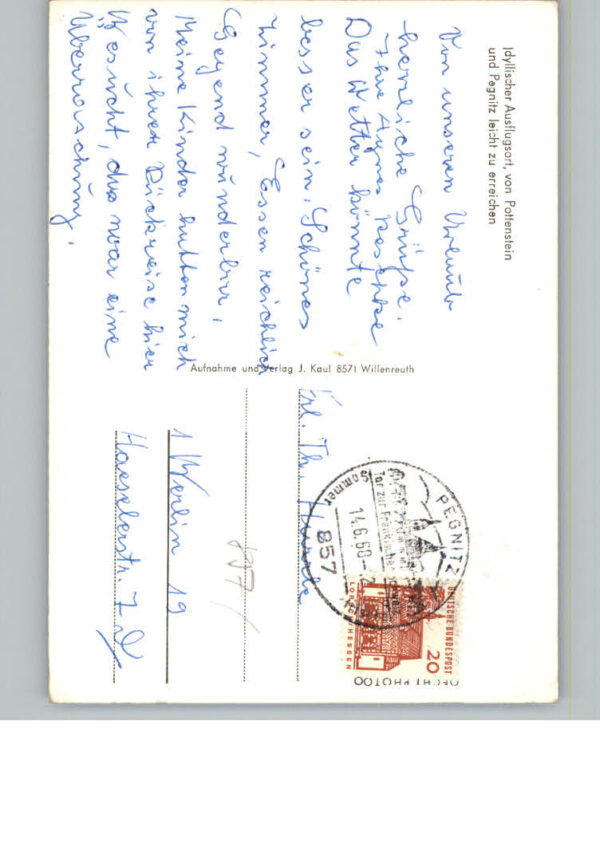 Idyllischer Ausflugsort, von Pottenstein
und Pegnitz leicht zu erreichen
Von unseren Urlaub
herzliche Grüße.
Ihre Agnes
Das Wetter könnte
besser sein. Schönes
Zimmer, Essen reichlich
Gegend wunderbar,
Meine Kinder hatten mich
von ihrer Rückreise hier
besucht, das war eine
Überraschung.
Aufnahme und Verlag J. Kaul 8571 Willenreuth
Frl. Th.
1 Berlin 19
Haeselerstr. 7d
857/
PEGNITZ
Tor zur Fränkischen
Sommer
14.6.68
857
DEUTSCHE BUNDESPOST
20
LORSCH HESSEN
ECHT PHOTO